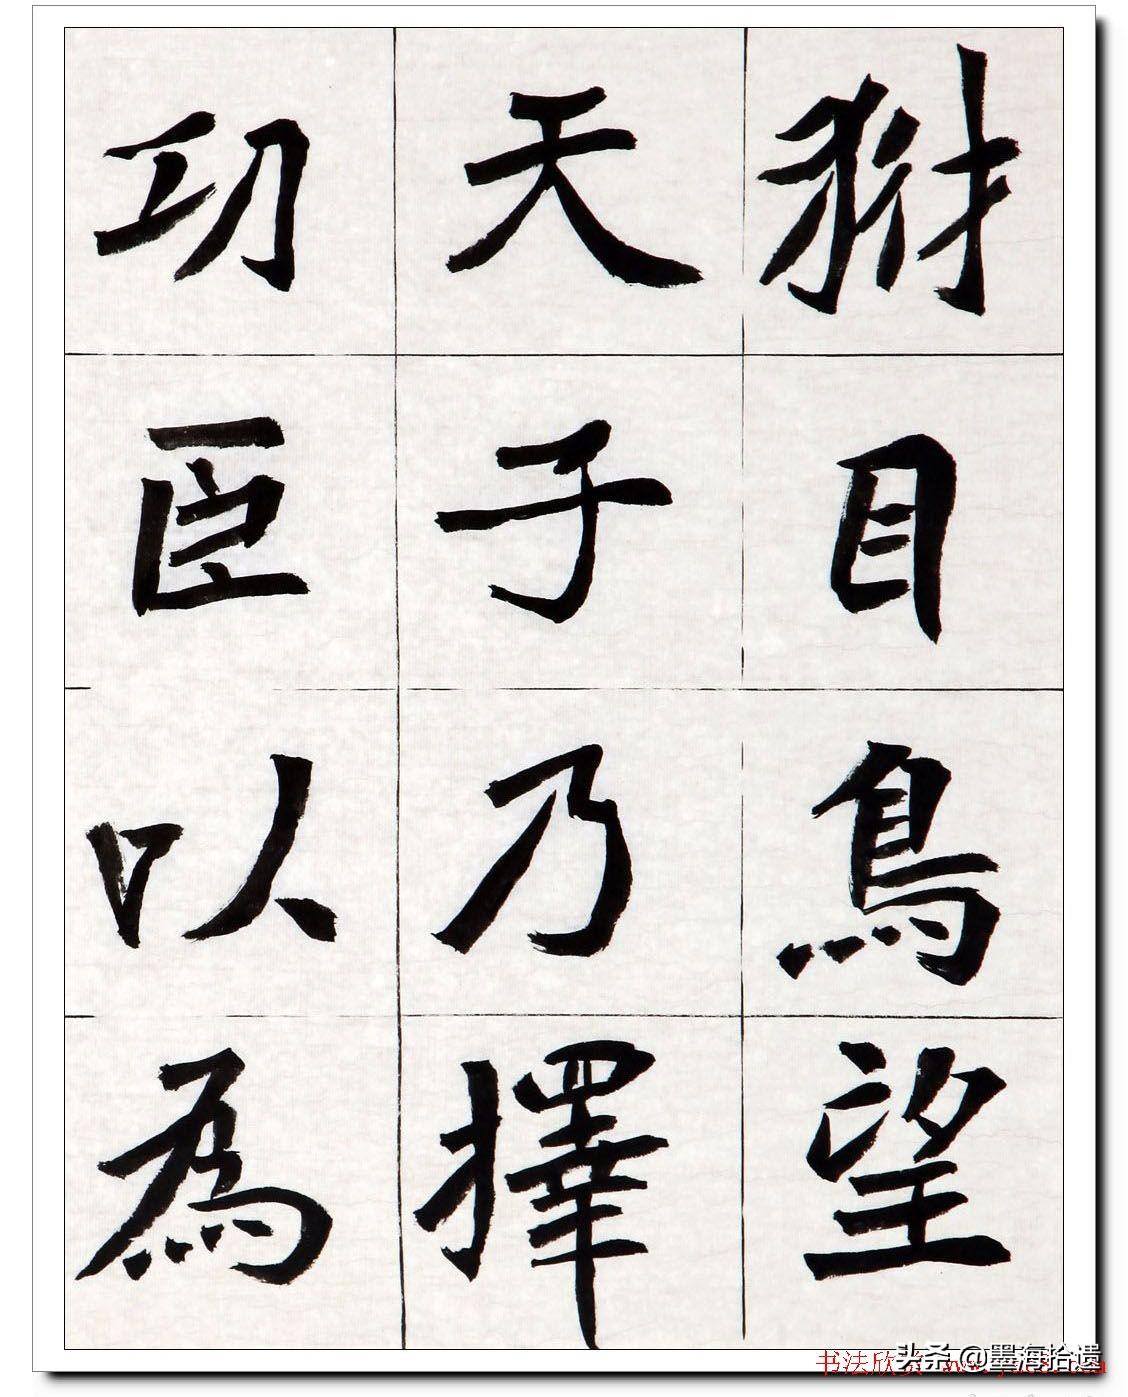 豺目鳥望
天子乃擇
功臣以為
书法欣赏
头条 @墨海拾遗